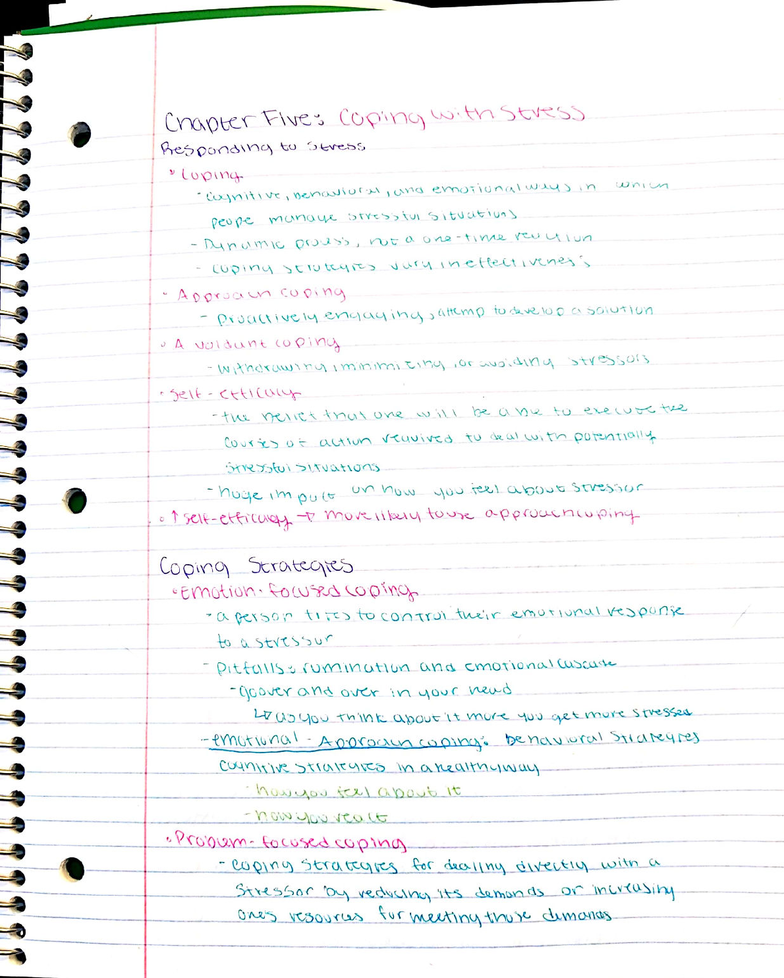 Chapter Five: Coping with Stress
Responding to Stress
• Coping
- Cognitive, behavioral, and emotional ways in which
peope manage stressful situations
- Dynamic process, not a one-time reaction
- coping strategies vary in effectiveness
• Approach coping
- Proactively engaging, attemp to develop a solution
• Avoidant coping
- withdrawing, minimizing, or avoiding stressors
• Self-efficacy
- the belief that one will be able to execute the
courses of action required to deal with potentially
stressful situations
- huge impact on how you feel about stressor
• ↑ self-efficacy → more likely to use approach coping
Coping Strategies
• Emotion-focused coping
- a person tries to control their emotional response
to a stressor
- Pitfalls: rumination and emotional cascade
- go over and over in your head
↳ as you think about it more you get more stressed
- emotional-Approach coping: behavioral strategies
cognitive strategies in a healthy way
- how you feel about it
- how you react
• Problem-focused coping
- coping strategies for dealing directly with a
stressor by reducing its demands or increasing
ones resources for meeting those demands